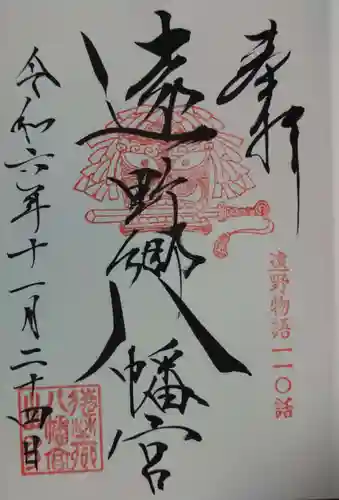 奉拝
遠野郷八幡宮
遠野物語一一〇話
令和六年十一月二十四日